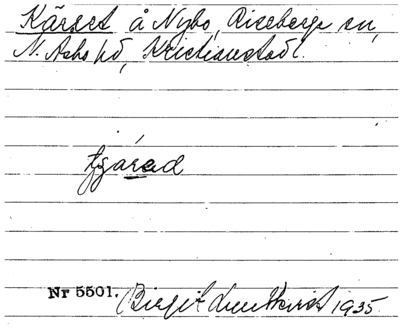 Kärret å Nybo, Riseberga sn,
N. Åsbo hd, Kristianstads l.
kjárəd
Nr 5501. Birgit Lundkvist 1935.